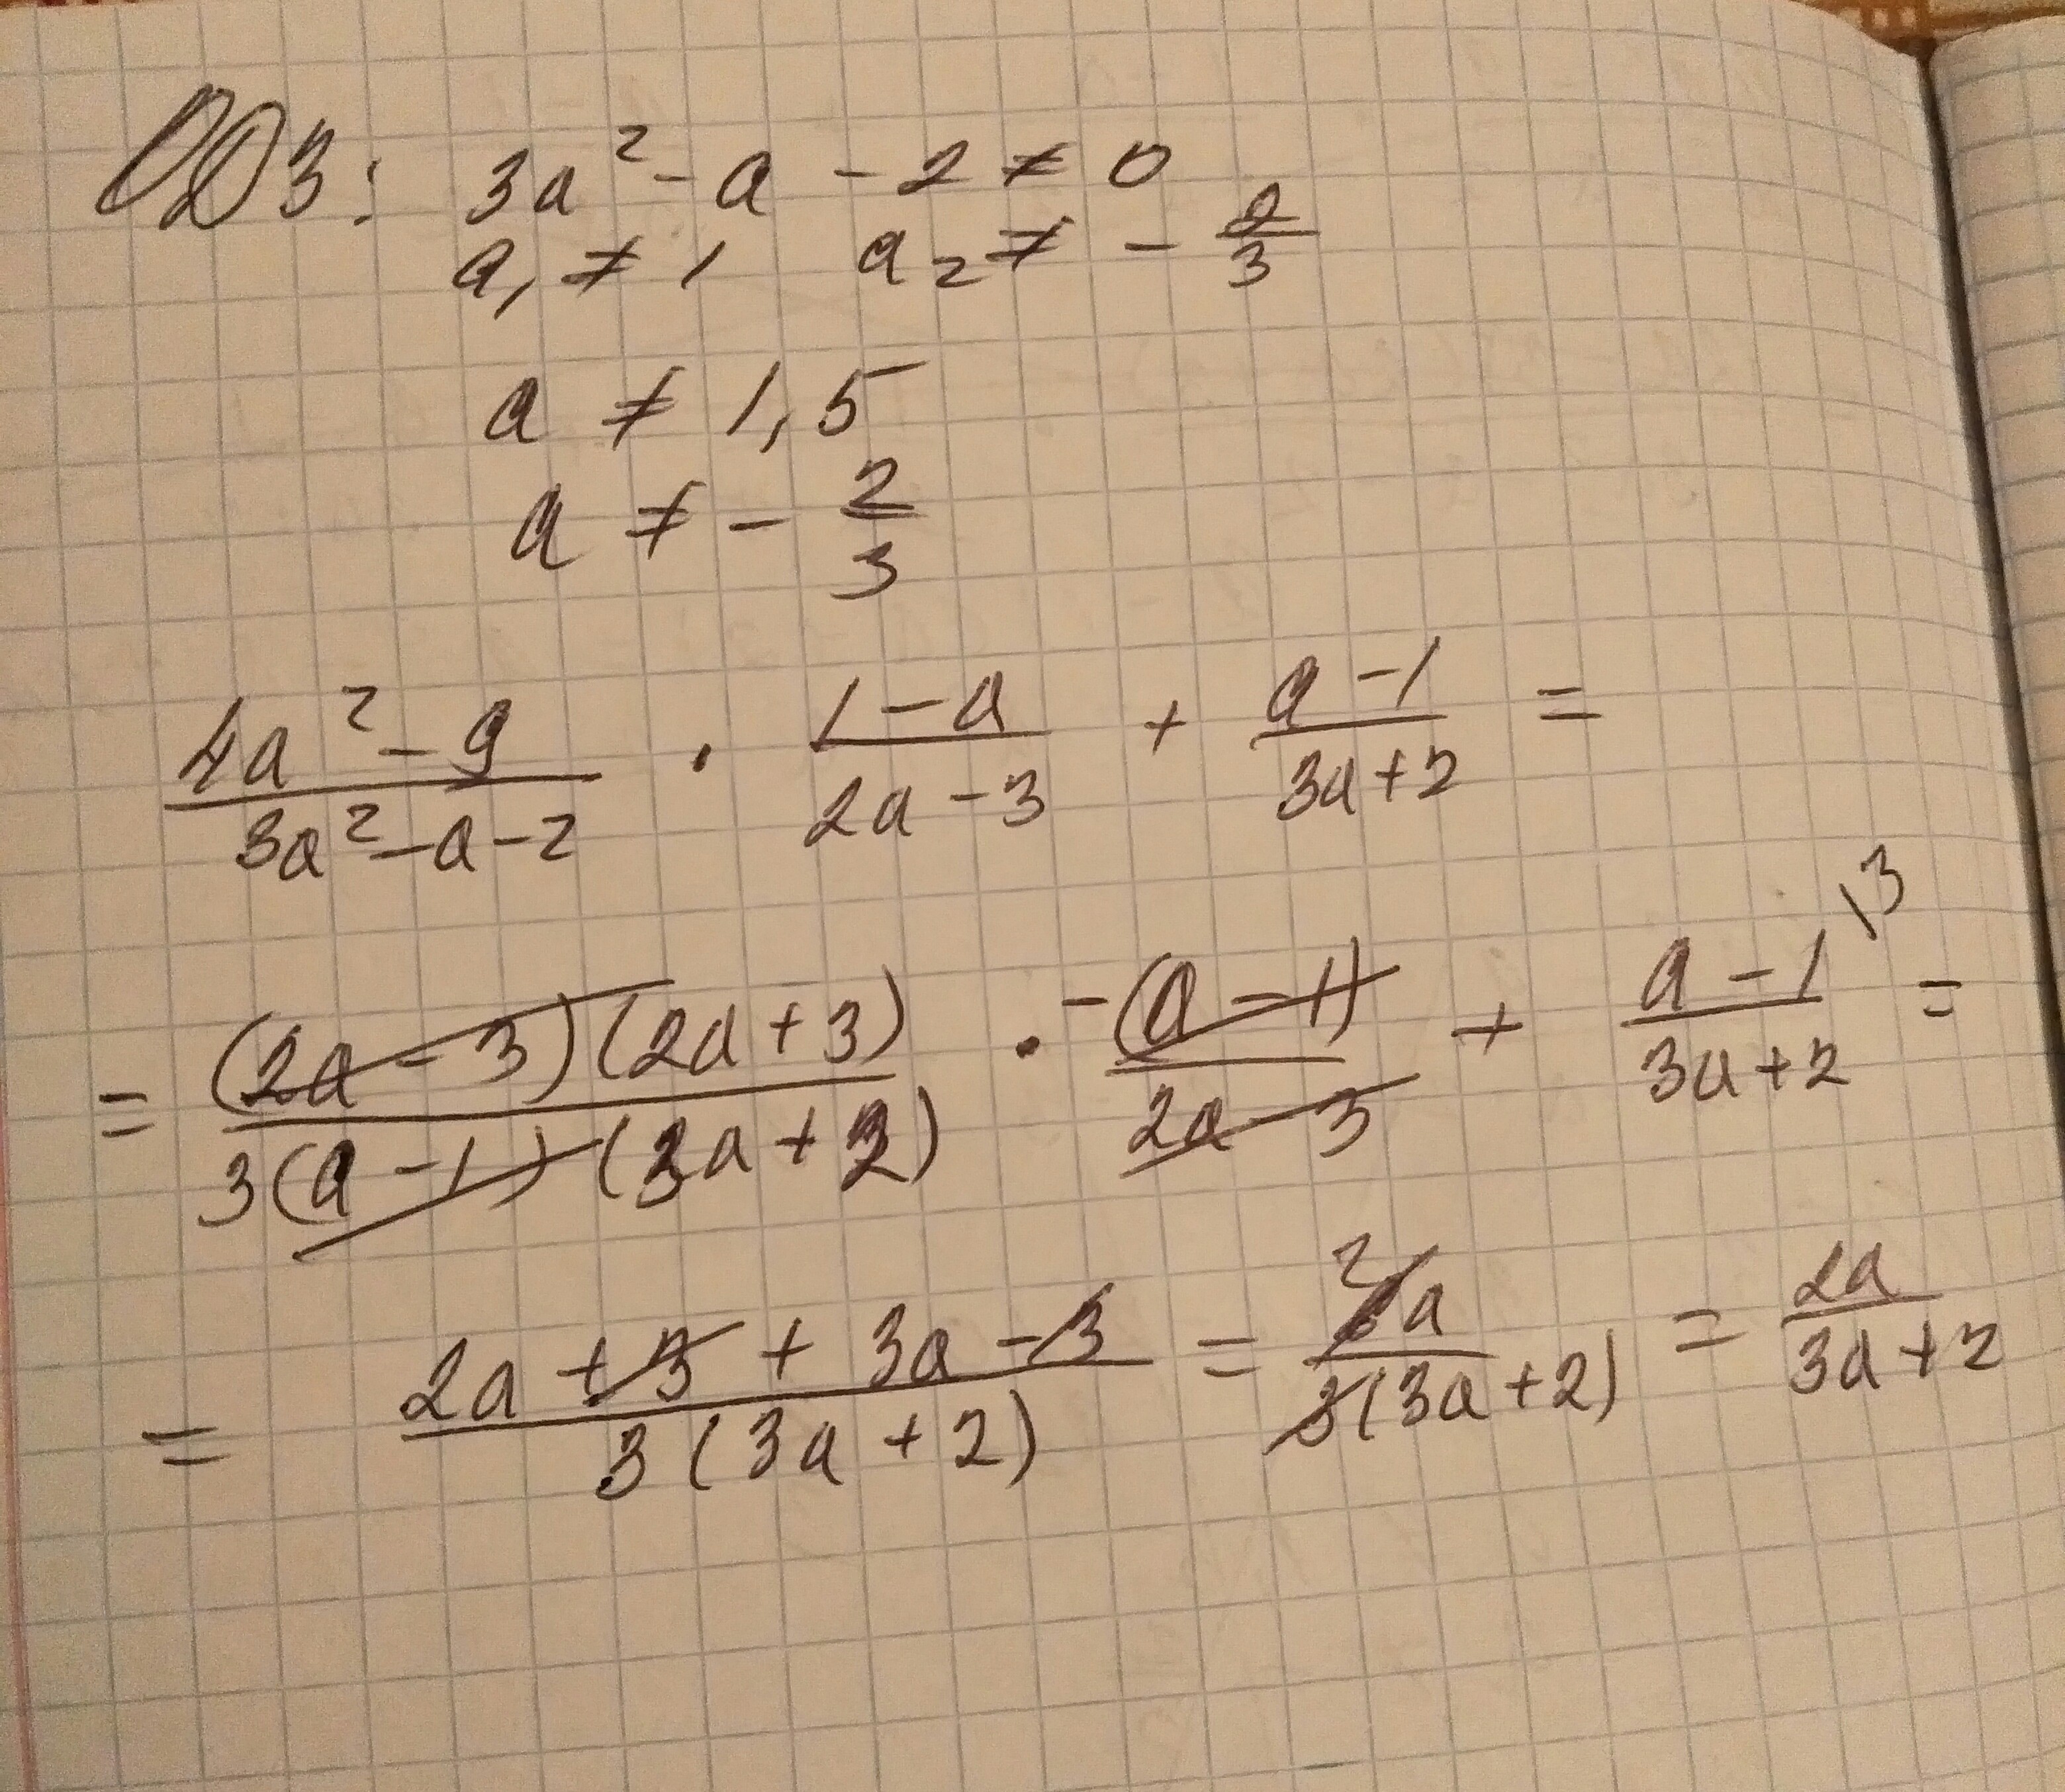 ОДЗ: 3a² - a - 2 ≠ 0
a₁ ≠ 1 a₂ ≠ - 2/3
a ≠ 1,5
a ≠ - 2/3
(4a² - 9)/(3a² - a - 2) · (1 - a)/(2a - 3) + (a - 1)/(3a + 2) =
= ((2a - 3)(2a + 3))/(3(a - 1)(3a + 2)) · (-(a - 1))/(2a - 3) + (a - 1)/(3a + 2) \3 =
= (2a + 3 + 3a - 3)/(3(3a + 2)) = 2 6a/(3(3a + 2)) = 2a/(3a + 2)